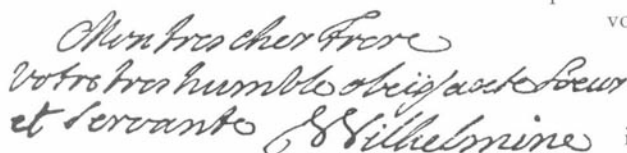 vo
Mon tres cher Frere
votre tres humble obeissante Soeur
et Servante Wilhelmine
i